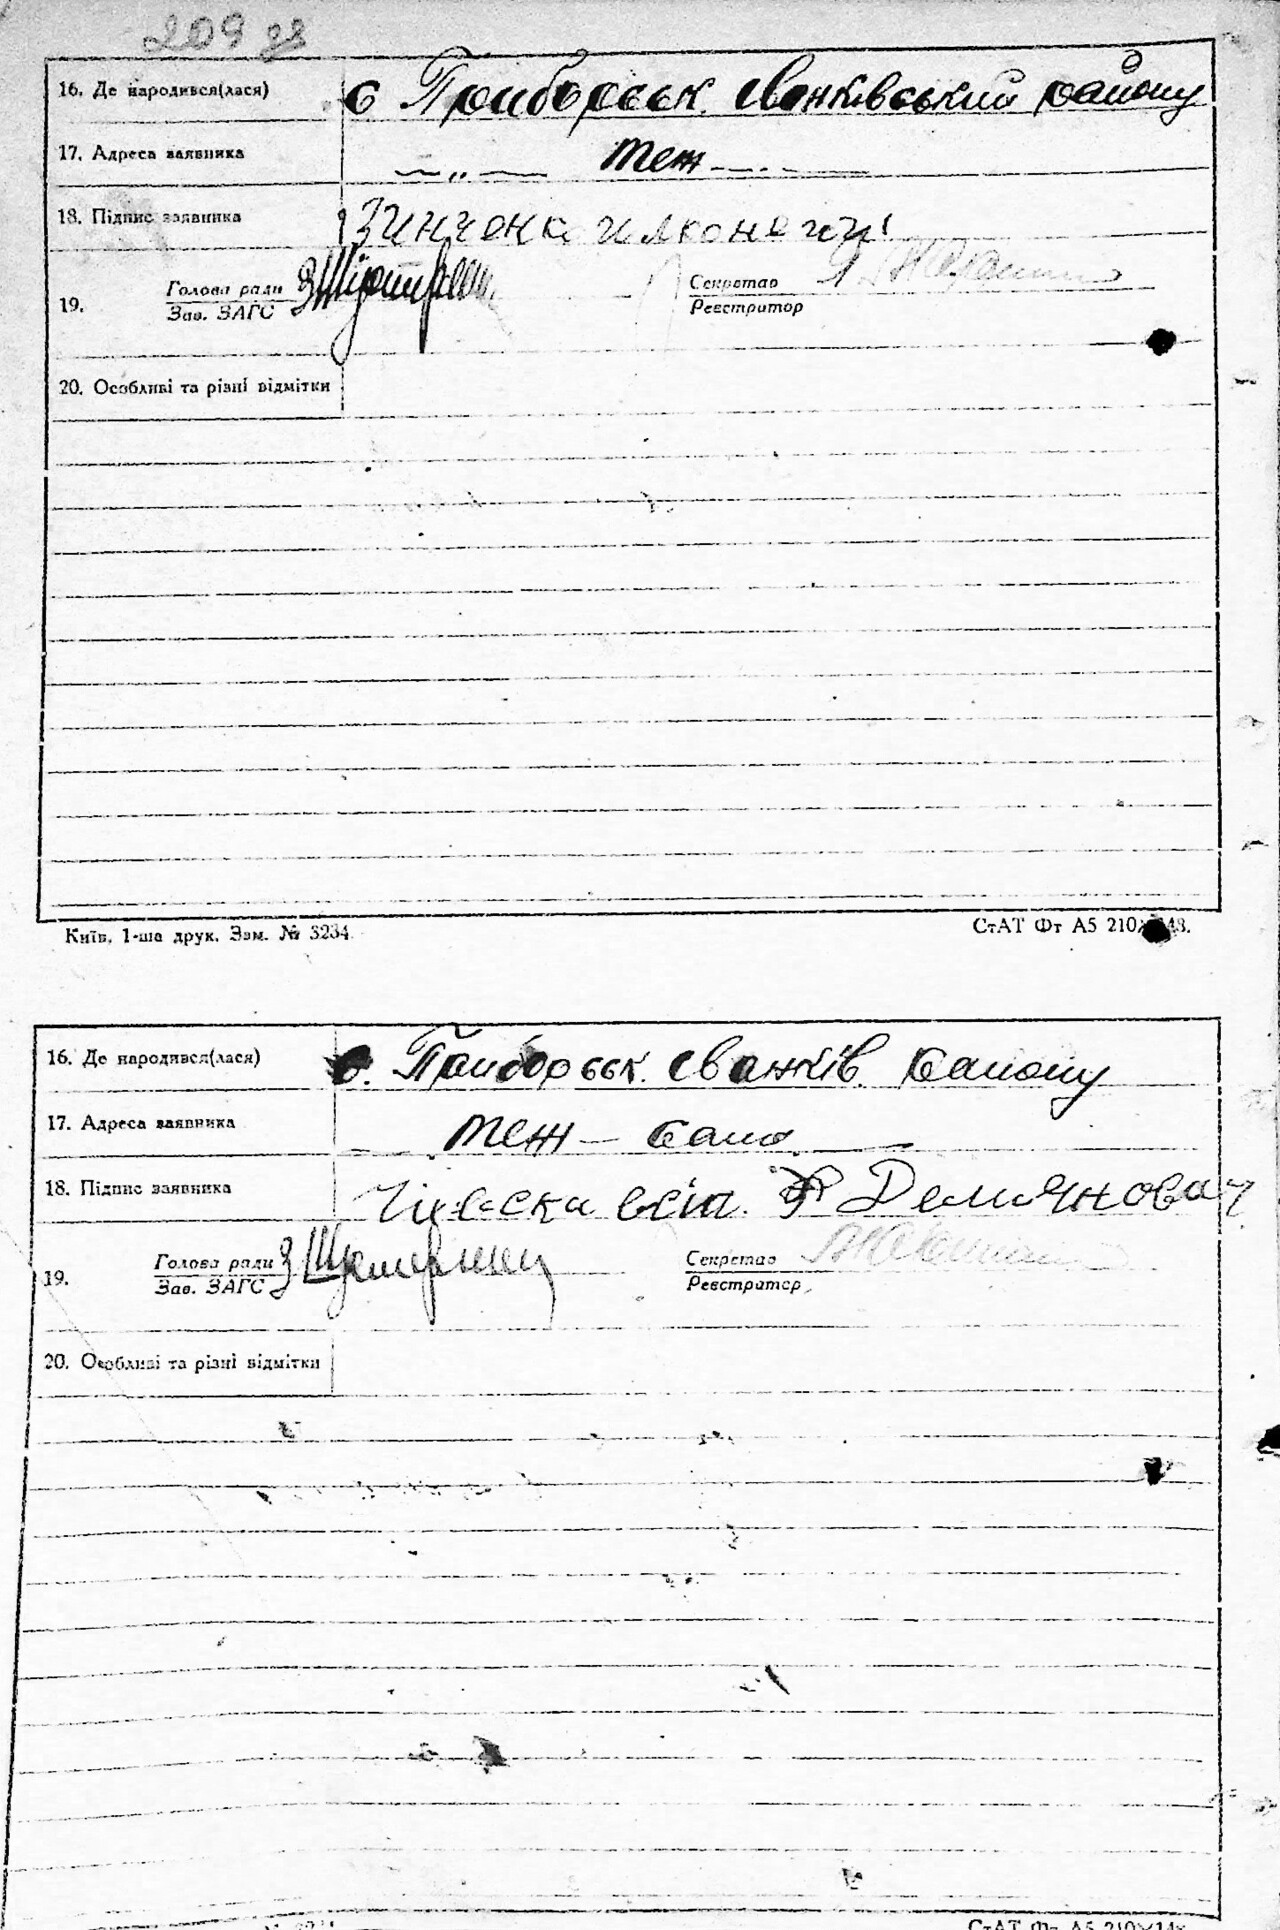 209 зв
16. Де народився(лася) с Приборськ Іванківський району
17. Адреса заявника — „ — теж — . —
18. Підпис заявника Зинченко
19. Голова ради Секретар
Зав. ЗАГС Реєстратор
20. Особливі та різні відмітки
Київ, 1-ша друк. Зам. № 3234 СтАТ Фт А5 210×148.
16. Де народився(лася) с. Приборськ Іванків. району
17. Адреса заявника теж — само
18. Підпис заявника Демянович
19. Голова ради Секретар
Зав. ЗАГС Реєстратор
20. Особливі та різні відмітки
СтАТ Фт А5 210×14